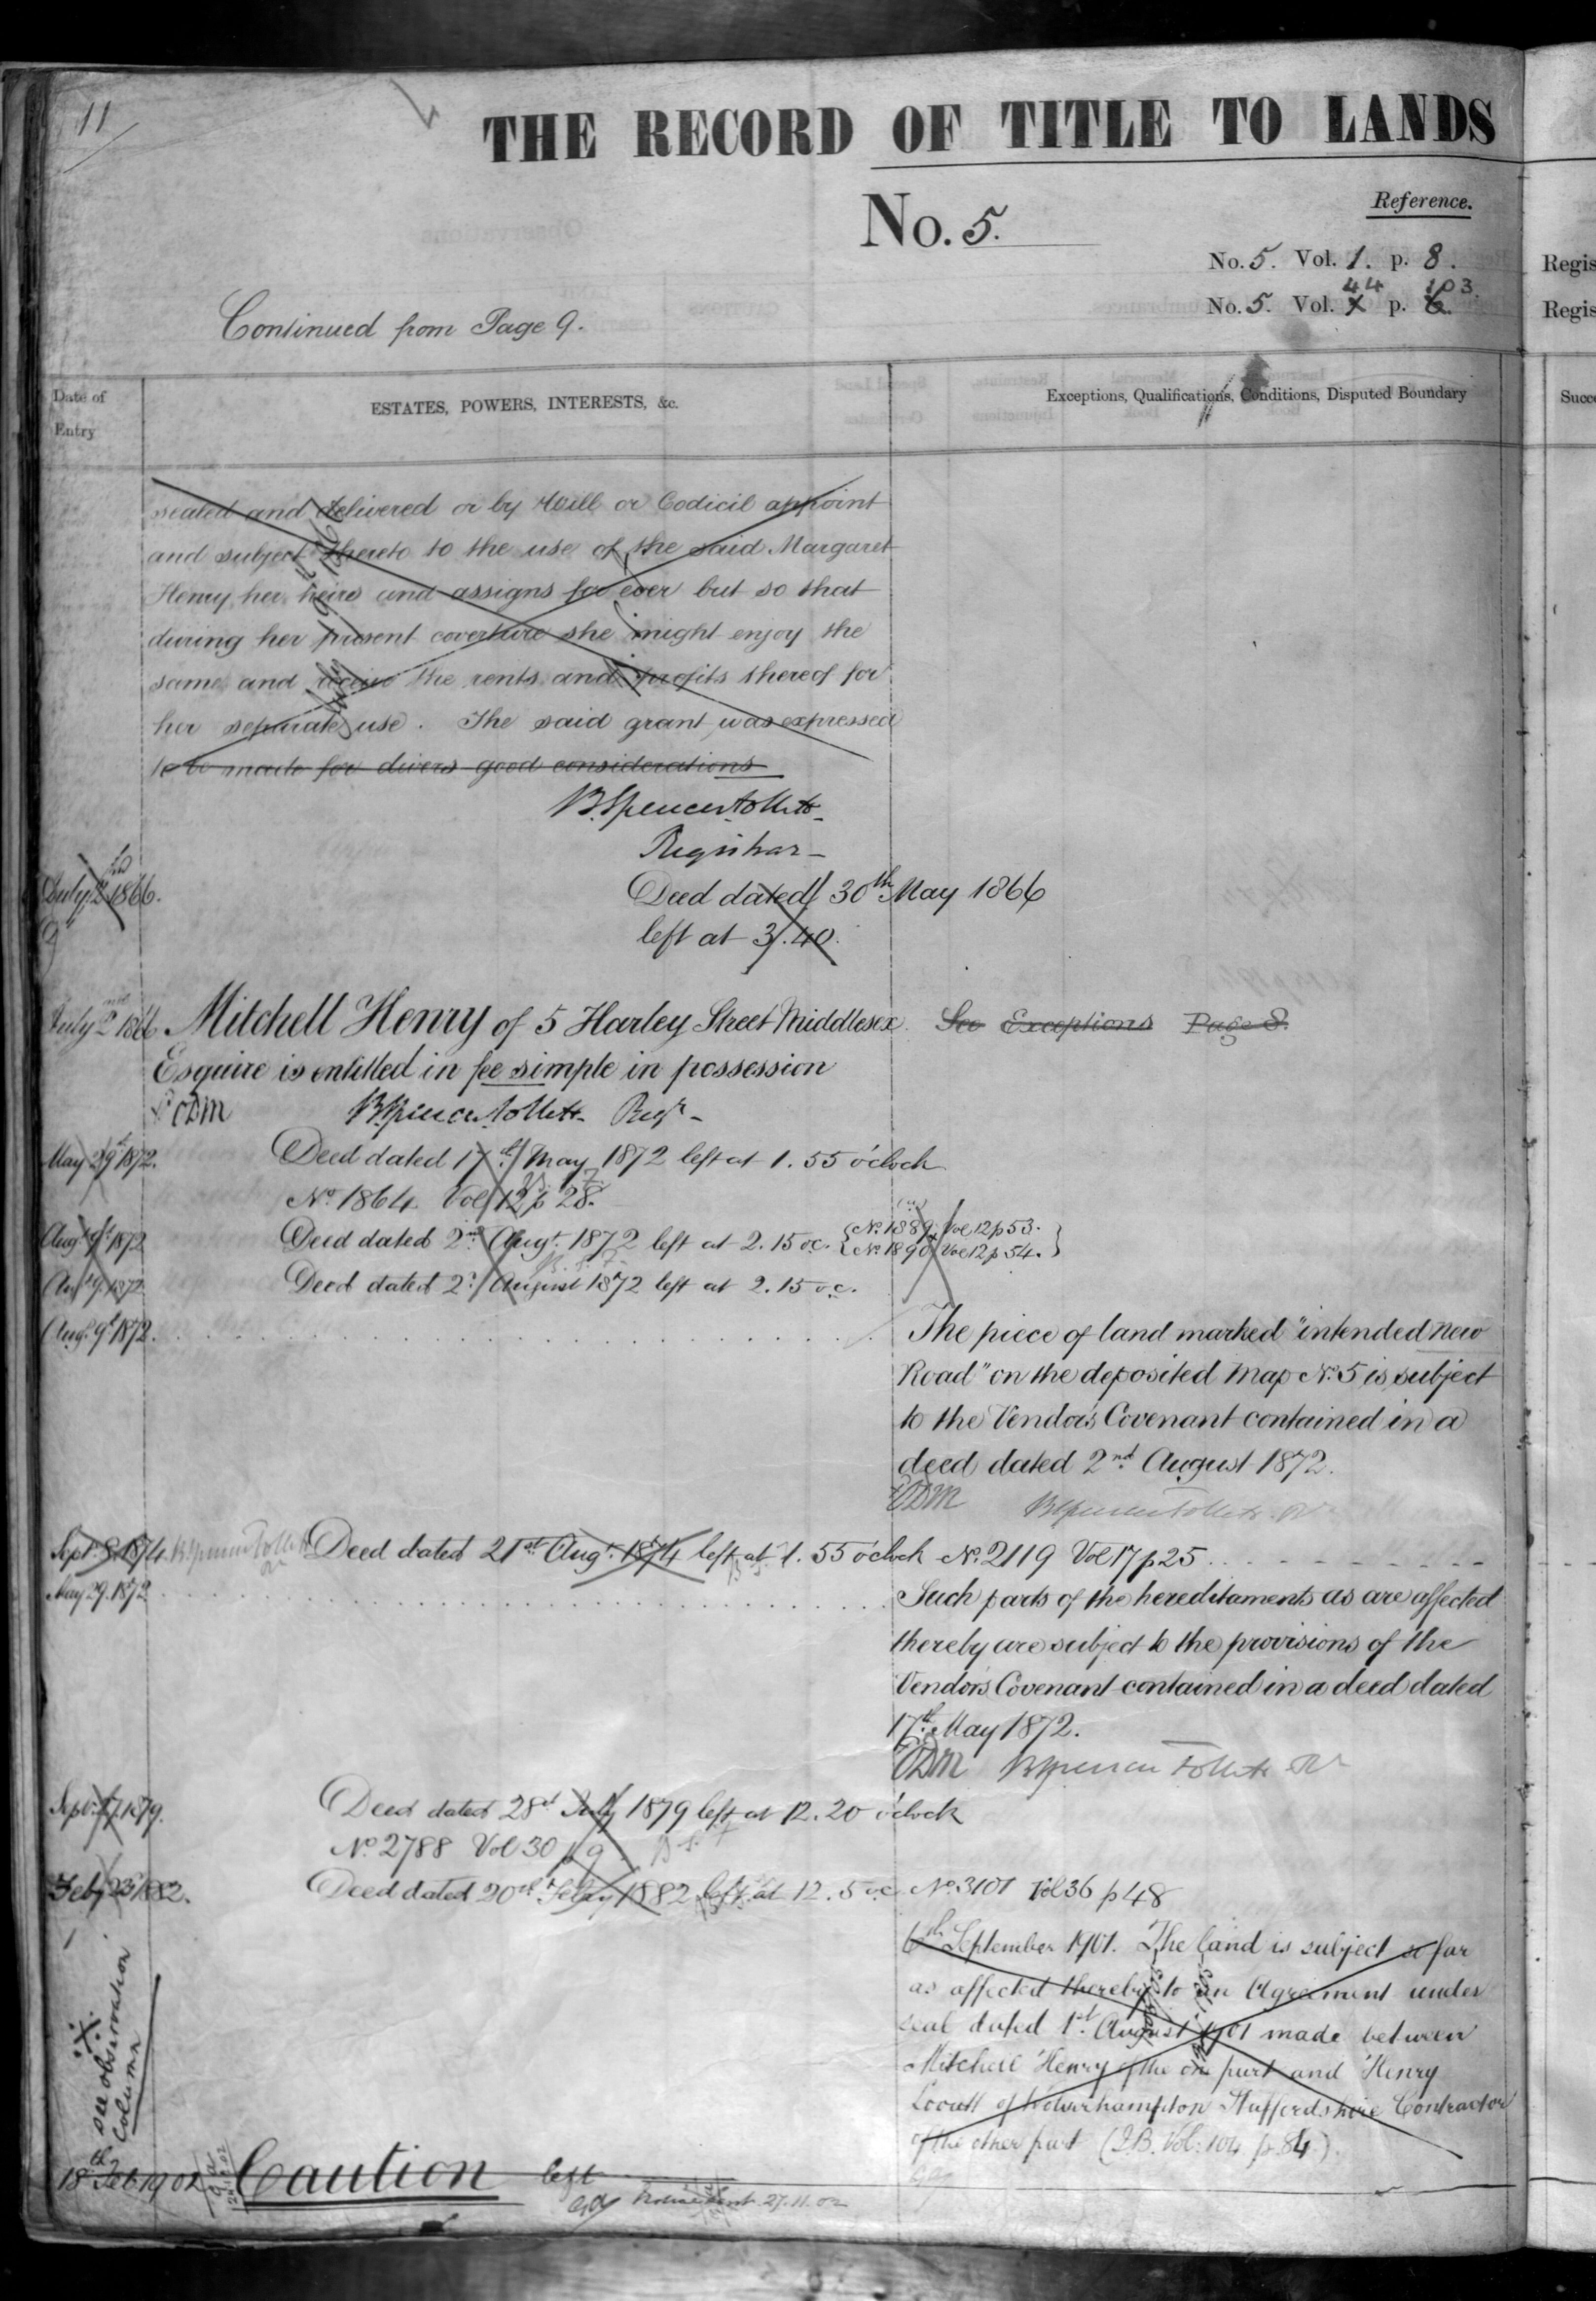 11
THE RECORD OF TITLE TO LANDS
No. 5.
Reference.
No. 5. Vol. 1. p. 8.
44 103.
No. 5. Vol. X p. 6.
Regis
Regis
Continued from Page 9.
Date of Entry
ESTATES, POWERS, INTERESTS, &c.
Exceptions, Qualifications, Conditions, Disputed Boundary
Succe
sealed and delivered or by Will or Codicil appoint
and subject thereto to the use of the said Margaret
Henry her heirs and assigns for ever but so that
during her present coverture she might enjoy the
same and receive the rents and profits thereof for
her separate use. The said grant was expressed
to be made for divers good considerations
B. Spencer Follett
Registrar
July 2nd 1866. Deed dated 30th May 1866
left at 3.40.
July 2nd 1866 Mitchell Henry of 5 Harley Street Middlesex See Exceptions Page 8.
Esquire is entitled in fee simple in possession
EDM B Spencer Follett Regr
May 29th 1872. Deed dated 17th May 1872 left at 1.55 o'clock
No. 1864 Vol 12 p 28.
Augt 9th 1872 Deed dated 2nd Augt. 1872 left at 2.15 o.c. {No. 1889 Vol 12 p 53.
{No. 1890 Vol 12 p 54.}
Aug 9. 1872 Deed dated 2d August 1872 left at 2.15 o.c.
Aug. 9th 1872. The piece of land marked "intended new
Road" on the deposited Map No. 5 is subject
to the Vendor's Covenant contained in a
deed dated 2nd August 1872.
EDM B Spencer Follett Rr
Sept. 8. 1874 B Spencer Follett Rr Deed dated 21st Augt. 1874 left at 1.55 o'clock No. 2119 Vol 17 p 25
May 29. 1872 Such parts of the hereditaments as are affected
thereby are subject to the provisions of the
Vendors Covenant contained in a deed dated
17th May 1872.
EDM B Spencer Follett Rr
Sept. 17. 1879. Deed dated 28th July 1879 left at 12.20 o'clock
No. 2788 Vol 30 p 9 B S. F
Feby 23d 1882. Deed dated 20th Feby 1882 left at 12.5 o.c. No. 3101 Vol 36 p 48
6th September 1901. The land is subject so far
as affected thereby to an Agreement under
seal dated 1st August 1901 made between
Mitchell Henry of the one part and Henry
Lovatt of Wolverhampton Staffordshire Contractor
of the other part (I.B. Vol: 104 p. 84.)
see observation
Column
18th Feb 1902 Caution left
Notice sent 27.11.02